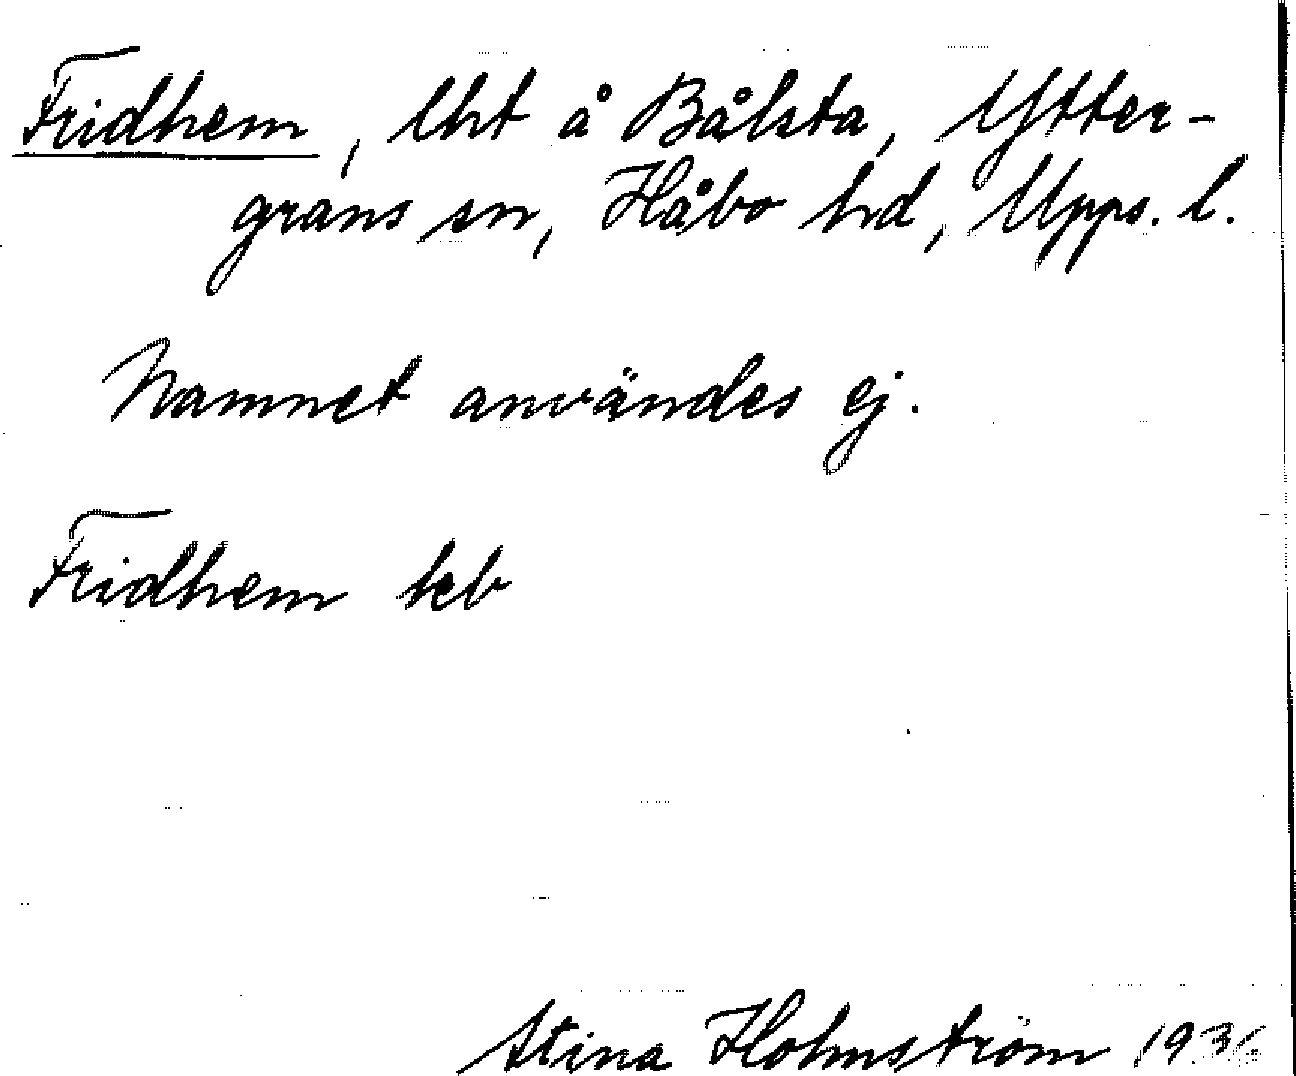 Fridhem, lht å Bålsta, Ytter-
grans sn, Håbo hd, Upps. l.
Namnet användes ej.
Fridhem keb
Stina Holmström 1936